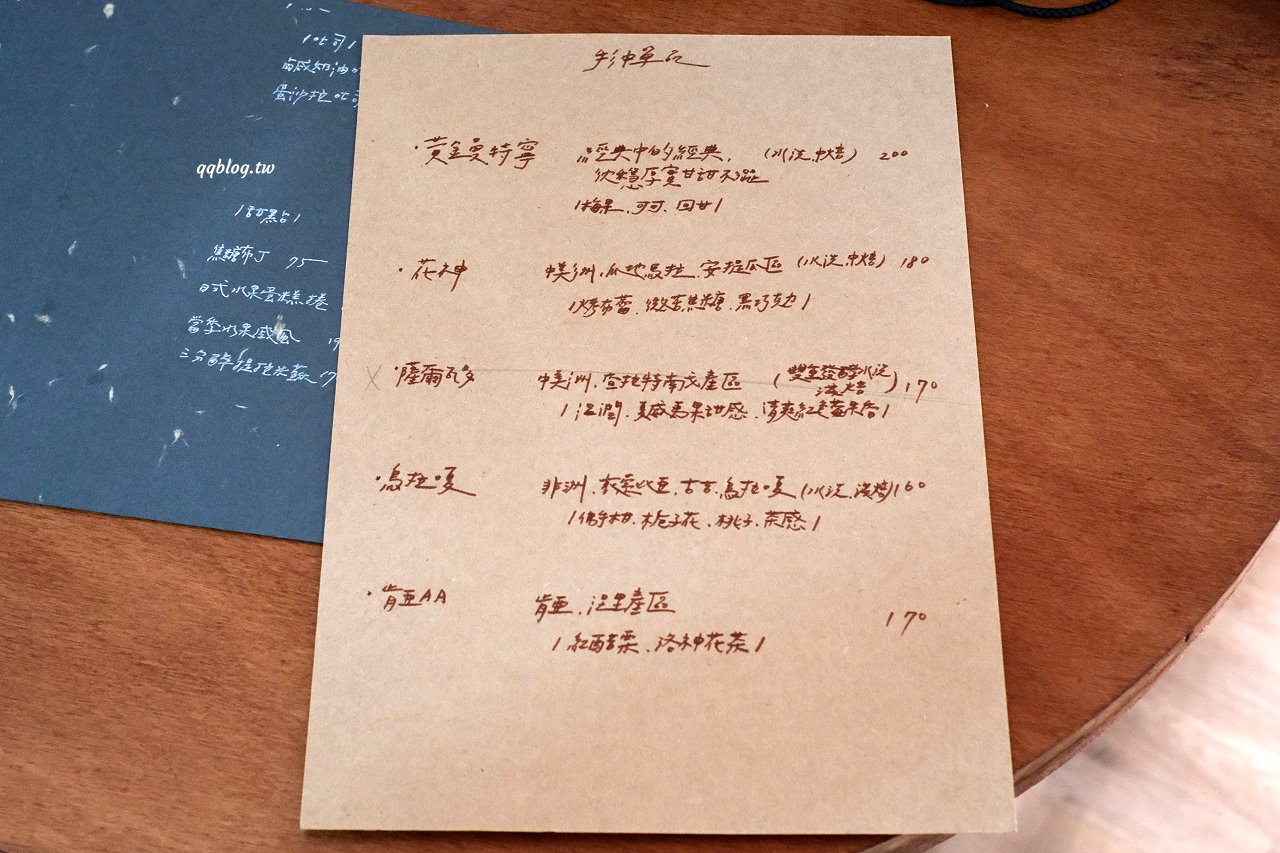 手沖單品
·黃金曼特寧 經典中的經典, (水洗.中焙) 200
沈穩厚實甘甜不澀
/梅果、可可、回甘/
·花神 中美洲.瓜地馬拉.安提瓜區 (水洗.中焙) 180
/烤布蕾.微苦焦糖.黑巧克力/
·薩爾瓦多 中美洲.查拉特南戈產區 (雙重發酵水洗 淺焙) 170
/溫潤.夏威夷果甜感.清爽紅蘋果香/
·烏拉嘎 非洲.衣索比亞.古吉.烏拉嘎 (水洗.淺焙) 160
/佛手柑.梔子花.桃子.茶感/
·肯亞AA 肯亞.涅里產區 170
/紅醋栗.洛神花茶/
/吐司/
鹹奶油
蛋沙拉吐司
qqblog.tw
/甜點/
焦糖布丁 95
日式水果蛋糕捲
當季水果戚風 19
三分醉提拉米蘇 17